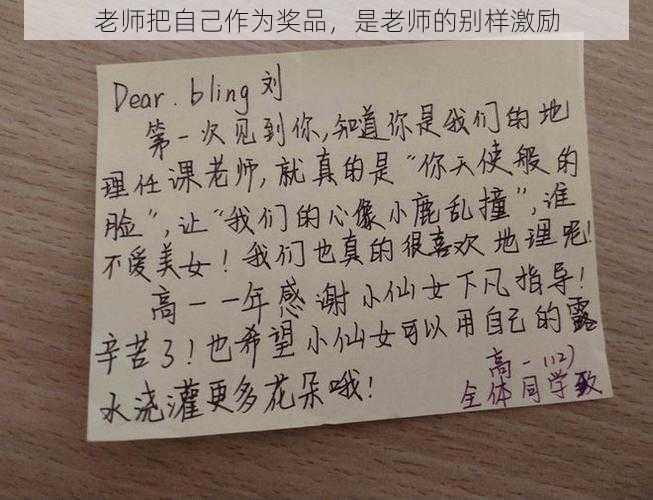 老师把自己作为奖品，是老师的别样激励
Dear. bling 刘
第一次见到你,知道你是我们的地
理任课老师,就真的是“你天使般的
脸”,让“我们的心像小鹿乱撞”,谁
不爱美女！我们也真的很喜欢地理呢!
高一一年感谢小仙女下凡指导!
辛苦了!也希望小仙女可以用自己的露
水浇灌更多花朵哦!
高一(12)
全体同学致